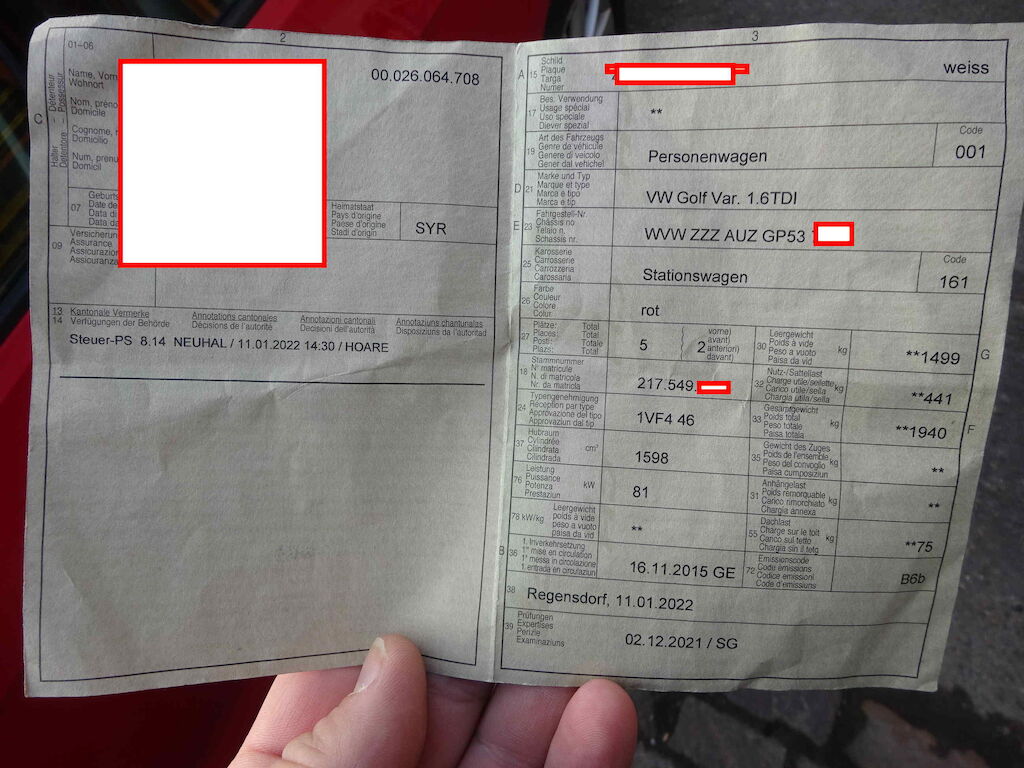 2
01-06
C
Halter - Détenteur
Detentore - Possessur
Name, Vorn
Wohnort
00.026.064.708
Nom, préno
Domicile
Cognome, n
Domicilio
Num, prenu
Domicil
07
Geburts
Date de
Data di
Data da
Heimatstaat
Pays d'origine
Paese d'origine
Stadi d'origin
SYR
09
Versicherun
Assurance
Assicurazion
Assicuranza
13
14
Kantonale Vermerke
Verfügungen der Behörde
Annotations cantonales
Décisions de l'autorité
Annotazioni cantonali
Decisioni dell'autorità
Annotaziuns chantunalas
Disposiziuns da l'autoritad
Steuer-PS 8.14 NEUHAL / 11.01.2022 14:30 / HOARE
3
A 15
Schild
Plaque
Targa
Numer
weiss
17
Bes. Verwendung
Usage spécial
Uso speciale
Diever spezial
**
19
Art des Fahrzeugs
Genre de véhicule
Genere di veicolo
Gener dal vehichel
Personenwagen
Code
001
D 21
Marke und Typ
Marque et type
Marca e tipo
Marca e tip
VW Golf Var. 1.6TDI
E 23
Fahrgestell-Nr.
Châssis no
Telaio n.
Schassis nr.
WVW ZZZ AUZ GP53
25
Karosserie
Carrosserie
Carrozzeria
Carossaria
Stationswagen
Code
161
26
Farbe
Couleur
Colore
Colur
rot
27
Plätze: Total
Places: Total
Posti: Totale
Plazs: Total
5
( 2
vorne)
avant)
anteriori)
davant)
30
Leergewicht
Poids à vide
Peso a vuoto
Paisa da vid
kg
**1499
G
18
Stammnummer
N° matricule
N. di matricola
Nr. da matricla
217.549.
32
Nutz-/Sattellast
Charge utile/sellette
Carico utile/sella
Chargia utila/sella
kg
**441
24
Typengenehmigung
Réception par type
Approvazione del tipo
Approvaziun dal tip
1VF4 46
33
Gesamtgewicht
Poids total
Peso totale
Paisa totala
kg
**1940
F
37
Hubraum
Cylindrée
Cilindrata
Cilindrada
cm³
1598
35
Gewicht des Zuges
Poids de l'ensemble
Peso del convoglio
Paisa cumposiziun
kg
**
76
Leistung
Puissance
Potenza
Prestaziun
kW
81
31
Anhängelast
Poids remorquable
Carico rimorchiato
Chargia annexa
kg
**
78 kW/kg
Leergewicht
poids à vide
peso a vuoto
paisa da vid
**
55
Dachlast
Charge sur le toit
Carico sul tetto
Chargia sin il tetg
kg
**75
B 36
1. Inverkehrsetzung
1re mise en circulation
1a messa in circolazione
1. entrada en circulaziun
16.11.2015 GE
72
Emissionscode
Code émissions
Codice emissioni
Code d'emissiuns
B6b
38
Regensdorf, 11.01.2022
39
Prüfungen
Expertises
Perizie
Examinaziuns
02.12.2021 / SG